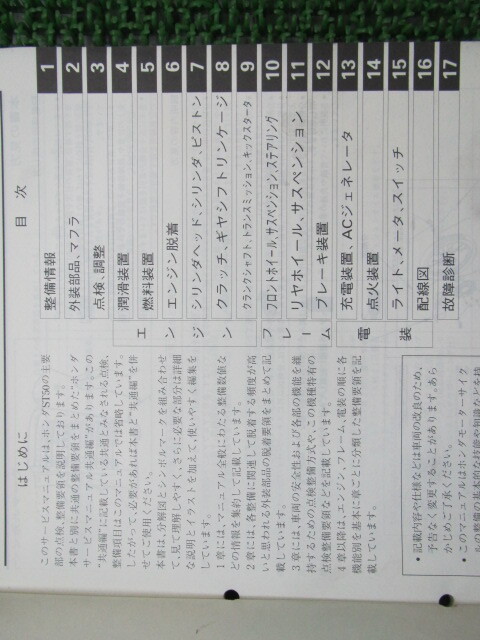 はじめに
このサービスマニュアルは、ホンダST50の主要
部の点検、整備要領を説明しております。
本書と別に共通の整備要領をまとめた"ホンダ
サービスマニュアル共通編"があります。この
"共通編"に記載している共通とみなされる点検、
整備項目はこのマニュアルでは省略しています。
したがって、必要があれば本書と"共通編"を併
せてご使用ください。
本書は、分解図とシンボルマークを組み合わせ
て、見て理解しやすく、さらに必要な部分は詳細
な説明とイラストを加えて、使いやすく編集を
しています。
1章には、マニュアル全般にわたる整備数値な
どの情報を集約して記載しています。
2章には、各整備に関連して脱着する頻度が高
いと思われる外装部品の脱着要領をまとめて記
載しています。
3章には、車両の安全性および各部の機能を維
持するための点検整備方式や、この機種特有の
点検整備要領などを記載しています。
4章以降は、エンジン、フレーム、電装の順に各
機能別を基本に章ごとに分類した整備要領を記
載しています。
• 記載内容や仕様などは車両の改良のため、
予告なく変更することがあります。あら
かじめご了承ください。
• このマニュアルはホンダモーターサイク
目 次
整備情報 1
外装部品、マフラ 2
点検、調整 3
エンジン
潤滑装置 4
燃料装置 5
エンジン脱着 6
シリンダヘッド、シリンダ、ピストン 7
クラッチ、ギヤシフトリンケージ 8
クランクシャフト、トランスミッション、キックスタータ 9
フレーム
フロントホイール、サスペンション、ステアリング 10
リヤホイール、サスペンション 11
ブレーキ装置 12
電装
充電装置、ACジェネレータ 13
点火装置 14
ライト、メータ、スイッチ 15
配線図 16
故障診断 17